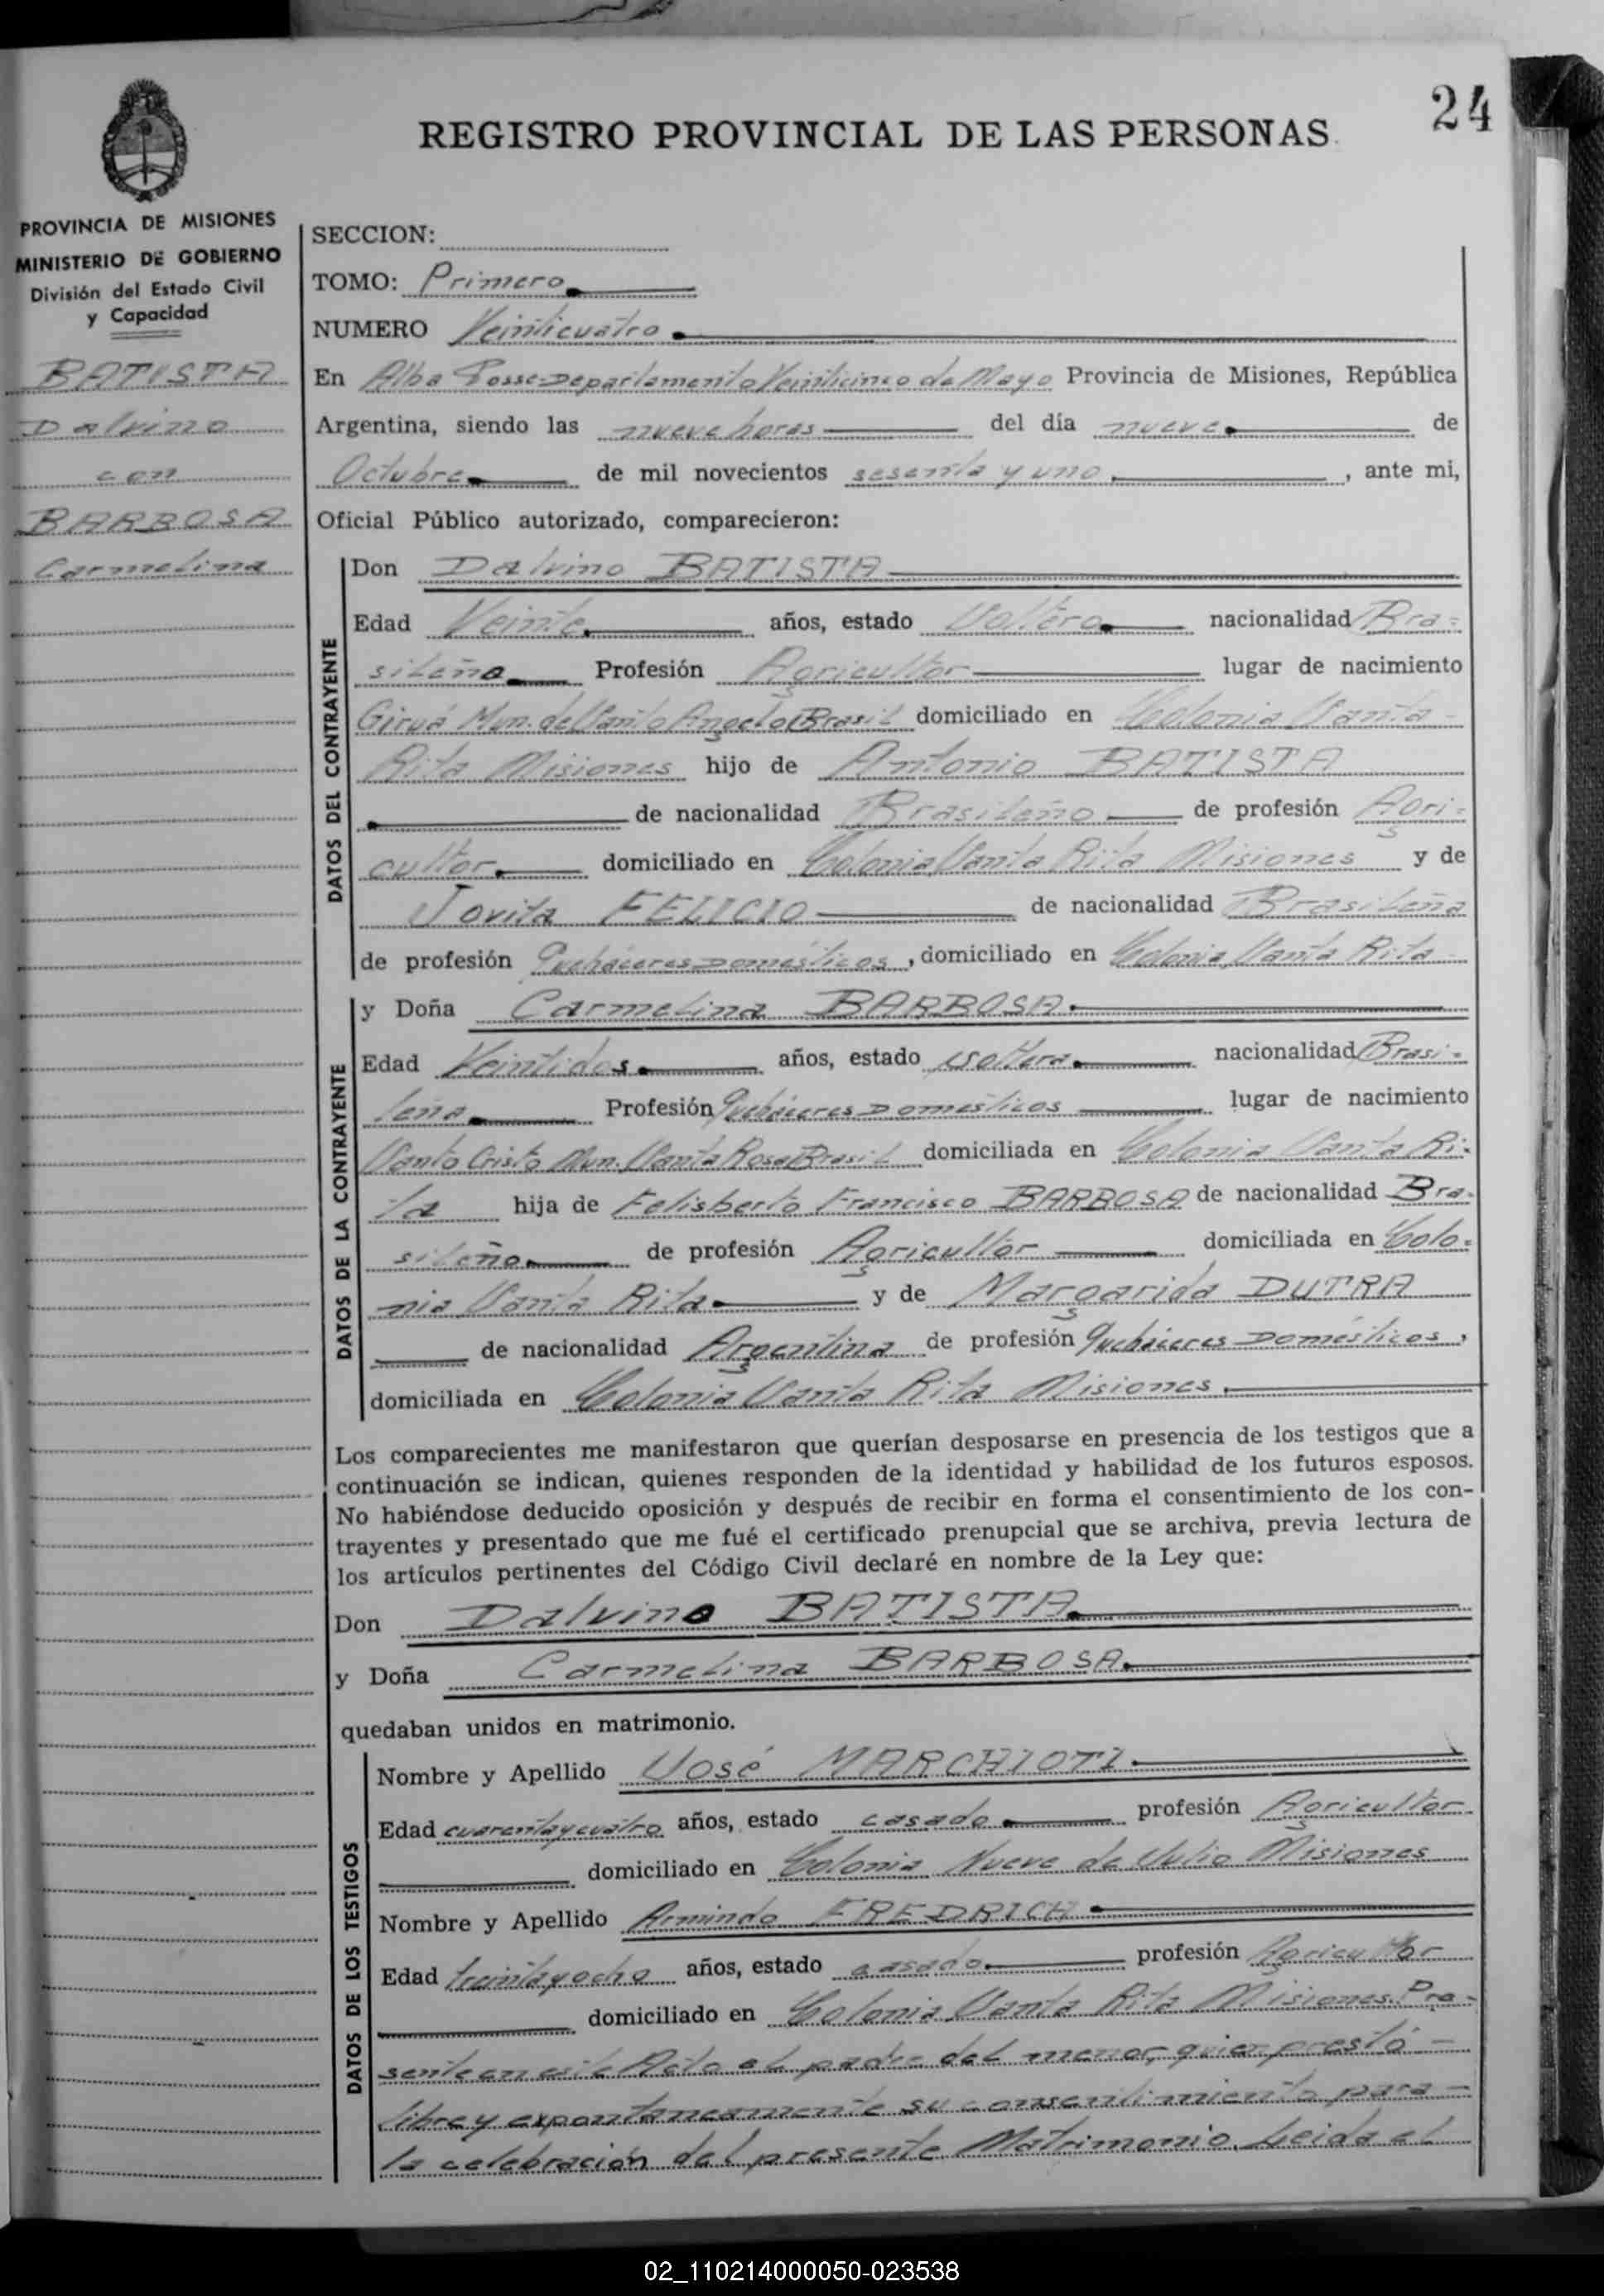 24
REGISTRO PROVINCIAL DE LAS PERSONAS
PROVINCIA DE MISIONES
MINISTERIO DE GOBIERNO
División del Estado Civil
y Capacidad
BATISTA
Dalvino
con
BARBOSA
Carmelina
SECCION:
TOMO: Primero
NUMERO Veinticuatro
En Alba Posse-Departamento Veinticinco de Mayo Provincia de Misiones, República
Argentina, siendo las nueve horas del día nueve de
Octubre de mil novecientos sesenta y uno, ante mi,
Oficial Público autorizado, comparecieron:
DATOS DEL CONTRAYENTE
Don Dalvino BATISTA
Edad Veinte años, estado Soltero nacionalidad Bra-
sileña Profesión Agricultor lugar de nacimiento
Giruá Mun. de Santo Angelo Brasil domiciliado en Colonia Santa
Rita Misiones hijo de Antonio BATISTA
de nacionalidad Brasileño de profesión Agri-
cultor domiciliado en Colonia Santa Rita Misiones y de
Jovita FELICIO de nacionalidad Brasileña
de profesión Quehaceres Domésticos, domiciliado en Colonia Santa Rita
DATOS DE LA CONTRAYENTE
y Doña Carmelina BARBOSA
Edad Veintidos años, estado soltera nacionalidad Brasi-
leña Profesión Quehaceres Domésticos lugar de nacimiento
Santo Cristo Mun. Santa Rosa Brasil domiciliada en Colonia Santa Ri-
ta hija de Felisberto Francisco BARBOSA de nacionalidad Bra-
sileño de profesión Agricultor domiciliada en Colo-
nia Santa Rita y de Margarida DUTRA
de nacionalidad Argentina de profesión Quehaceres Domésticos,
domiciliada en Colonia Santa Rita Misiones
Los comparecientes me manifestaron que querían desposarse en presencia de los testigos que a
continuación se indican, quienes responden de la identidad y habilidad de los futuros esposos.
No habiéndose deducido oposición y después de recibir en forma el consentimiento de los con-
trayentes y presentado que me fué el certificado prenupcial que se archiva, previa lectura de
los artículos pertinentes del Código Civil declaré en nombre de la Ley que:
Don Dalvino BATISTA
y Doña Carmelina BARBOSA
quedaban unidos en matrimonio.
DATOS DE LOS TESTIGOS
Nombre y Apellido José MARCHIOTI
Edad cuarentaycuatro años, estado casado profesión Agricultor
domiciliado en Colonia Nueve de Julio Misiones
Nombre y Apellido Armindo FREDRICH
Edad treintayocho años, estado casado profesión Agricultor
domiciliado en Colonia Santa Rita Misiones. Pre-
sente en este Acto el padre del menor, quien prestó
libre y expontaneamente su consentimiento para
la celebración del presente Matrimonio. Leida el
02_110214000050-023538